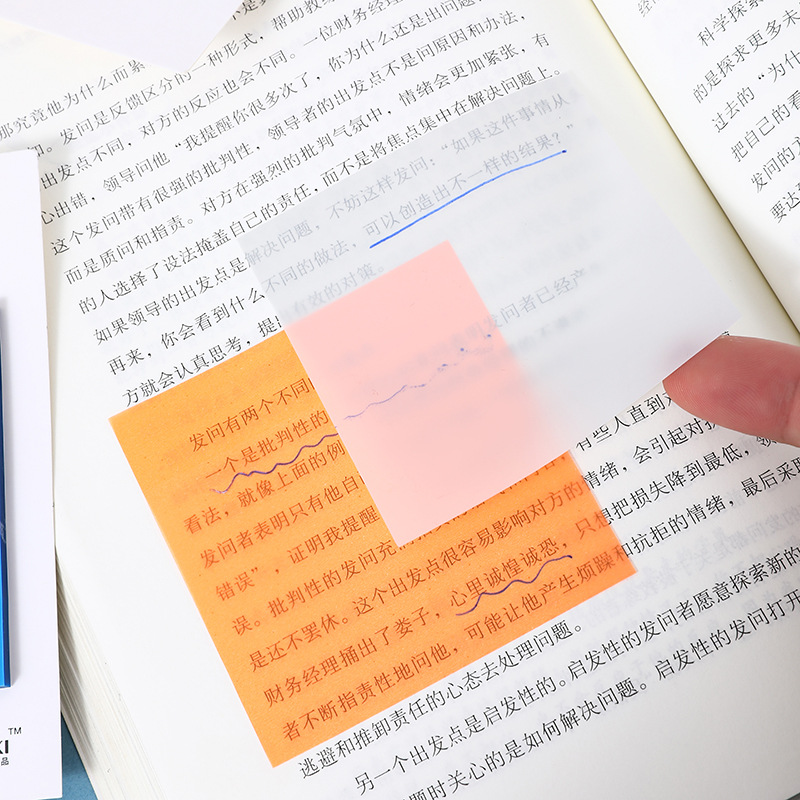 那究竟他为什么而紧
发问是反馈区分的一种形式，帮助教练
出发点不同，对方的反应也会不同。一位财务经理
心出错，领导问他“我提醒你很多次了，你为什么还是出问题
这个发问带有很强的批判性，领导者的出发点不是问原因和办法，
而是质问和指责。对方在强烈的批判气氛中，情绪会更加紧张，有
的人选择了设法掩盖自己的责任，而不是将焦点集中在解决问题上。
如果领导的出发点是解决问题，不妨这样发问：“如果这件事情从
再来，你会看到什么不同的做法，可以创造出不一样的结果？”
方就会认真思考，提出有效的对策。
发问有两个不同的
一个是批判性的 发问者已经产
看法，就像上面的例
发问者表明只有他自
错误”，证明我提醒
误。批判性的发问充 有些人直到
是还不罢休。这个出发点很容易影响对方的情绪，会引起对抗
财务经理捅出了娄子，心里诚惶诚恐，只想把损失降到最低，领
者不断指责性地问他，可能让他产生烦躁和抗拒的情绪，最后采取
逃避和推卸责任的心态去处理问题。
另一个出发点是启发性的。启发性的发问者愿意探索新的
题时关心的是如何解决问题。启发性的发问打开
科学探索
的是探求更多未
过去的“为什
把自己的看
发问的
要达
KI™
品